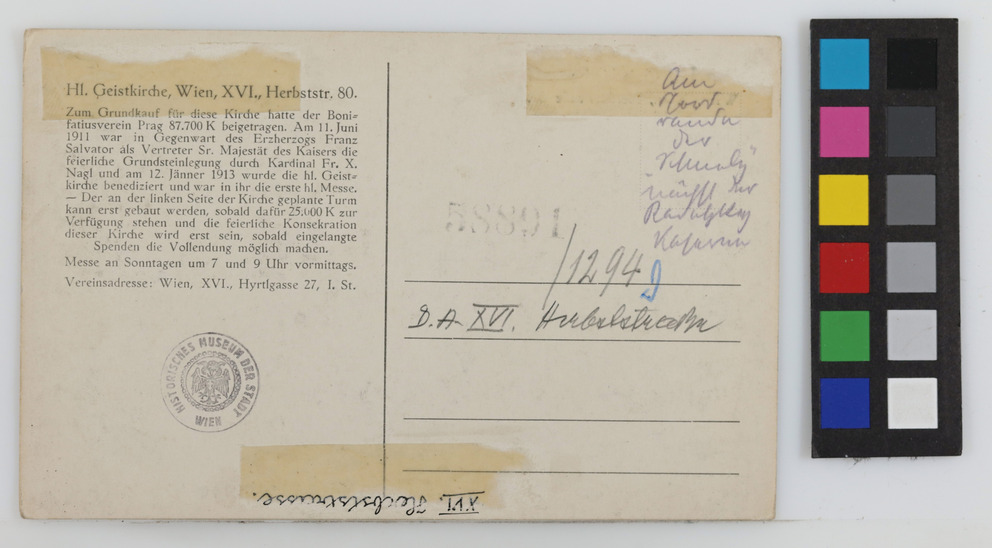 Hl. Geistkirche, Wien, XVI., Herbststr. 80.
Zum Grundkauf für diese Kirche hatte der Boni=
fatiusverein Prag 87.700 K beigetragen. Am 11. Juni
1911 war in Gegenwart des Erzherzogs Franz
Salvator als Vertreter Sr. Majestät des Kaisers die
feierliche Grundsteinlegung durch Kardinal Fr. X.
Nagl und am 12. Jänner 1913 wurde die hl. Geist=
kirche benediziert und war in ihr die erste hl. Messe.
— Der an der linken Seite der Kirche geplante Turm
kann erst gebaut werden, sobald dafür 25.000 K zur
Verfügung stehen und die feierliche Konsekration
dieser Kirche wird erst sein, sobald eingelangte
Spenden die Vollendung möglich machen.
Messe an Sonntagen um 7 und 9 Uhr vormittags.
Vereinsadresse: Wien, XVI., Hyrtlgasse 27, I. St.
HISTORISCHES MUSEUM DER STADT
WIEN
Am
Nord=
rande
der
"Schmelz"
nächst der
Radetzky
Kaserne
58891
/1294
D.A. XVI. Herbststraße
XVI. Herbststrasse.